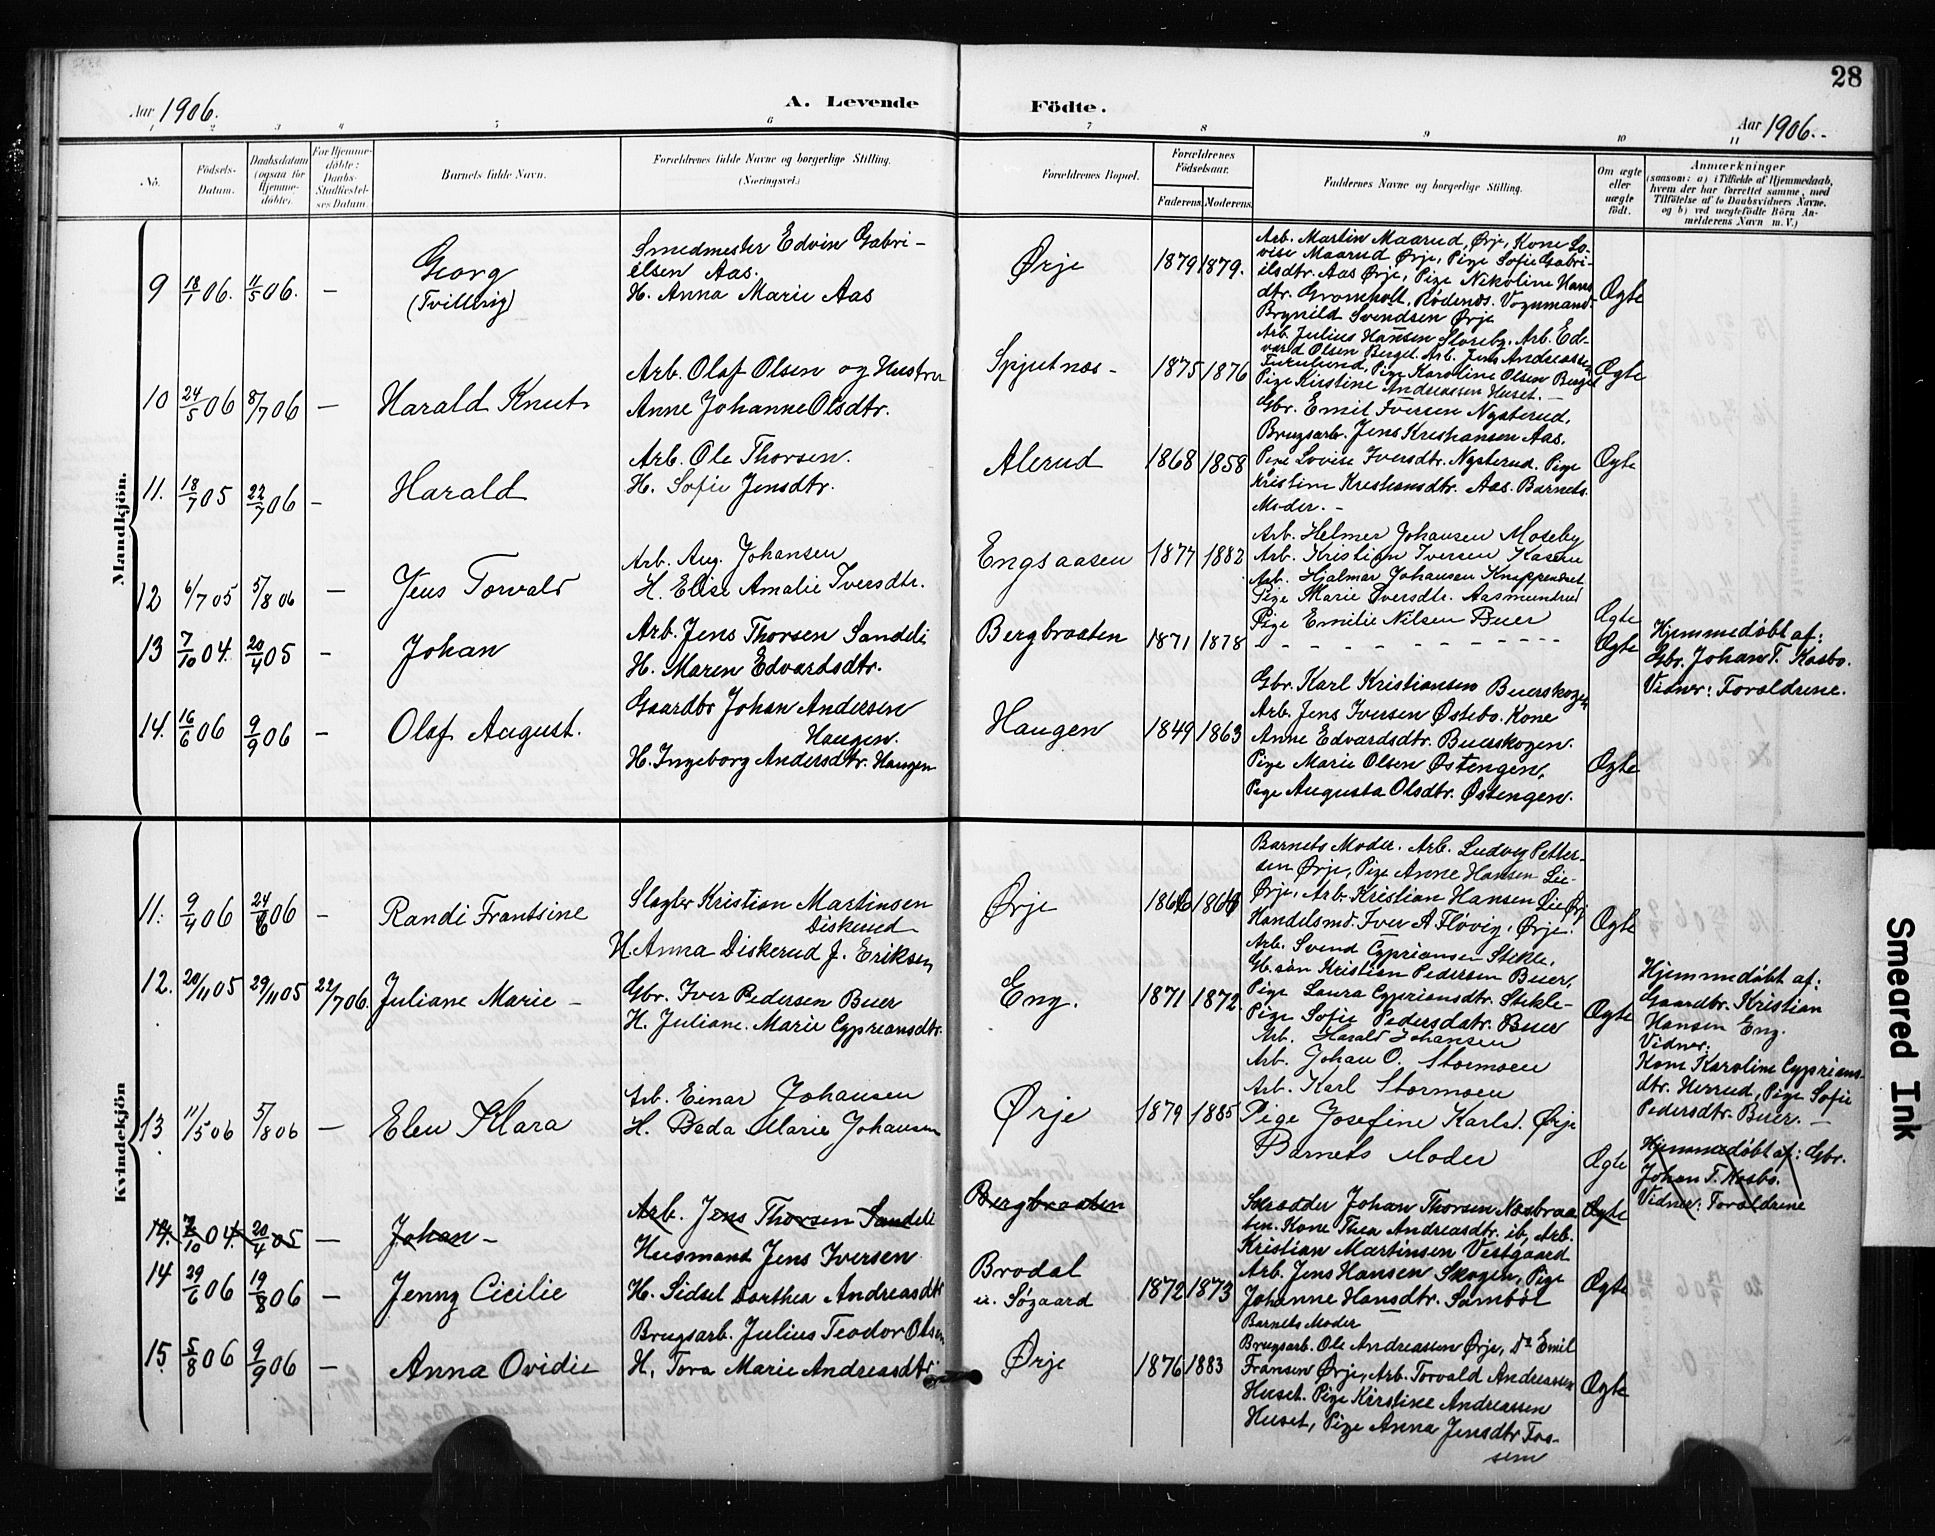 28
Aar 1906.
A. Levende
Födte.
Aar 1906.
1 2 3 4 5 6 7 8 9 10 11
No.
Födsels-
Datum.
Daabsdatum
(ogsaa for
Hjemme-
döbte).
For Hjemme-
döbte:
Daabs-
Stadfæstel-
ses Datum.
Barnets fulde Navn.
Forældrenes fulde Navne og borgerlige Stilling.
(Næringsvei.)
Forældrenes Bopæl.
Forældrenes
Födselsaar.
Faderens.
Moderens.
Faddernes Navne og borgerlige Stilling.
Om ægte
eller
uægte
födt.
Anmærkninger
(saasom: a) i Tilfælde af Hjemmedaab,
hvem der har forrettet samme, med
Tilföielse af to Daabsvidners Navne.
og b) ved uægtefödte Börn An-
melderens Navn m. V.)
Mandkjön.
9 18/1 06. 11/5 06. —
Georg
(Tvilling)
Smedmester Edvin Gabri-
elsen Aas.
H. Anna Marie Aas
Ørje
1879 1879.
Arb. Martin Maarud, Ørje, Kone Lo-
vise Maarud Ørje, Pige Sofie Gabri-
elsdtr. Aas Ørje, Pige Nikoline Hans
dtr. Gromholt, Rödenes. Vognmand
Brynild Svendsen Ørje
Ægte
10 24/5 06 8/7 06 —
Harald Knut
Arb. Olaf Olsen og Hustru
Anne Johanne Olsdtr.
Spjutnæs -
1875 1876
Arb. Julius Hansen Storeby. Arb. Ed-
vard Olsen Berget. Arb. Jens Andreassen
Furulund, Pige Karoline Olsen Berget
Pige Kirstine Andreassen Huset. —
Ægte
11. 18/7 05 22/7 06 —
Harald
Arb. Ole Thorsen.
H. Sofie Jensdtr.
Alerud
1868 1858
Gbr. Emil Iversen Nysterud,
Brugsarb. Jens Kristiansen Aas.
Pige Lovise Iversdtr. Nysterud. Pige
Kristine Kristiansdtr. Aas. Barnets
Moder. -
Ægte
12 6/7 05 5/8 06 —
Jens Torvald
Arb. Aug. Johansen
H. Elise Amalie Iversdtr.
Engsaasen
1877 1882
Arb. Helmer Johansen Moseby
Arb. Kristian Iversen Kasen
Arb. Hjalmar Johansen
Pige Marie Iversdtr. Aasmundrud
Pige Emilie Nilsen Buer
Ægte
13 7/10 04. 20/4 05 —
Johan
Arb. Jens Thorsen Sandeli
H. Maren Edvardsdtr.
Bergbraaten
1871 1878
- - - - - - - - - -
Ægte
Hjemmedøbt af:
Gbr. Johan T. Kasbo.
Vidner: Forældrene.
14. 16/6 06 9/9 06 —
Olaf August.
Gaardbr Johan Andersen
Haugen.
H. Ingeborg Andersdtr. Haugen
Haugen
1849 1863
Gbr. Karl Kristiansen Buerskogen
Arb. Jens Iversen Østebo. Kone
Anne Edvardsdtr. Buerskogen.
Pige Marie Olsen Østengen,
Pige Augusta Olsdtr. Østengen.
Ægte
Kvindekjön
11. 9/4 06 24/6 06 —
Randi Frantsine
Slagter Kristian Martinsen
Diskerud
H. Anna Diskerud f. Eriksen
Ørje
Barnets Moder. Arb. Ludvig Petter-
sen Ørje, Pige Anne Hansen Lie-
Ørje, Arb. Kristian Hansen Lie Ørje
Handelsmd. Iver A Fløvig, Ørje.
Ægte
12. 20/11 05 29/11 05 22/7 06.
Juliane Marie —
Gbr. Iver Pedersen Buer
H. Juliane Marie Cypriansdtr.
Eng.
1871 1872
Arb. Svend Cypriansen Stikle,
Gb. søn Kristian Pedersen Buer,
Pige Laura Cypriansdtr. Stikle-
Pige Sofie Pedersdatr. Buer
Ægte
Hjemmedøbt af:
Gaardbr. Kristian
Hansen Eng.
Vidner:
Kone Karoline Cyprians-
dtr. Herrud, Pige Sofie
Pedersdtr. Buer. —
13 11/5 06 5/8 06 —
Elen Klara
Arb. Einar Johansen
H. Beda Marie Johansen
Ørje
1879 1885
Arb. Harald Johansen
Arb. Johan O. Stormoen
Arb. Karl Stormoen
Pige Josefine Karls. Ørje
Barnets Moder
Ægte
14. 7/10 04. 20/4 05 —
Johan —
Arb. Jens Thorsen Sandeli
Bergbraaten
Ægte
Hjemmedøbt af: Gbr.
Johan T. Kasbo.
Vidner: Forældrene
14 29/6 06 19/8 06 —
Jenny Cicilie
Husmand Jens Iversen
H. Sidsel Dorthea Andreasdtr
Brødal
u. Søgaard
1872 1873
Skrædder Johan Thorsen Næsbraa
ten. Kone Thea Andreasdtr. ib, Arb.
Kristian Martinsen Vestgaard
Arb. Jens Hansen Skogen, Pige
Johanne Hansdtr. Sambøl
Barnets Moder
Ægte
15. 5/8 06 9/9 06 —
Anna Ovidie
Brugsarb. Julius Teodor Olsen
H. Tora Marie Andreasdtr.
Ørje
1876 1883
Brugsarb. Ole Andreassen Ørje, Do Emil
Fransen Ørje, Arb. Torvald Andreassen
Huset. Pige Kirstine Andreassen
Huset, Pige Anna Jensdtr Fos-
sem
Ægte
Smeared Ink